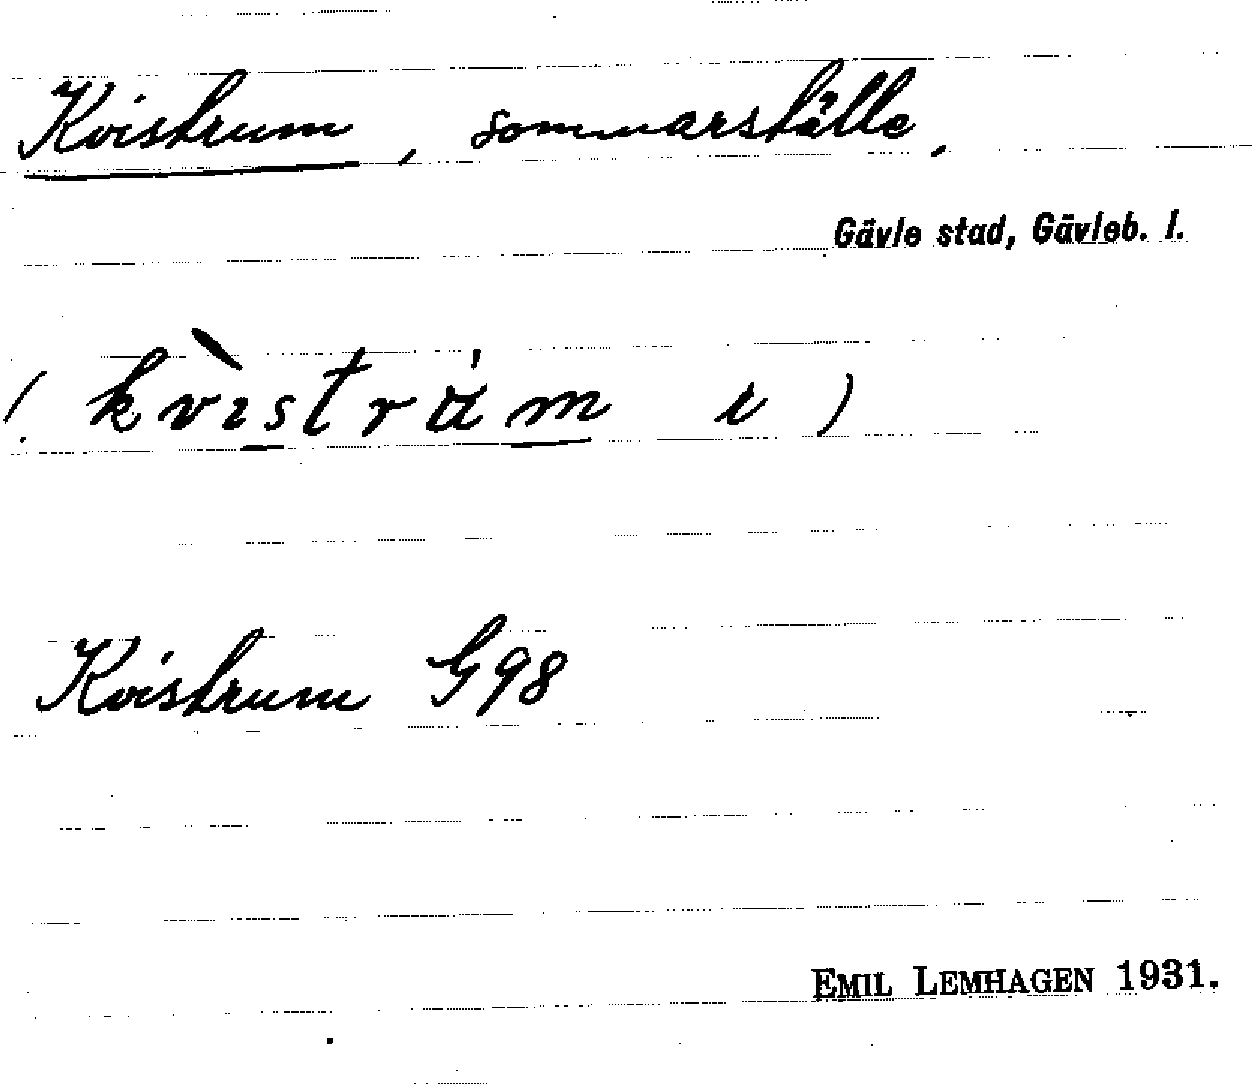 Kvistrum, sommarställe,
Gävle stad, Gävleb. l.
(kvìstrúm i)
Kvistrum G98
EMIL LEMHAGEN 1931.